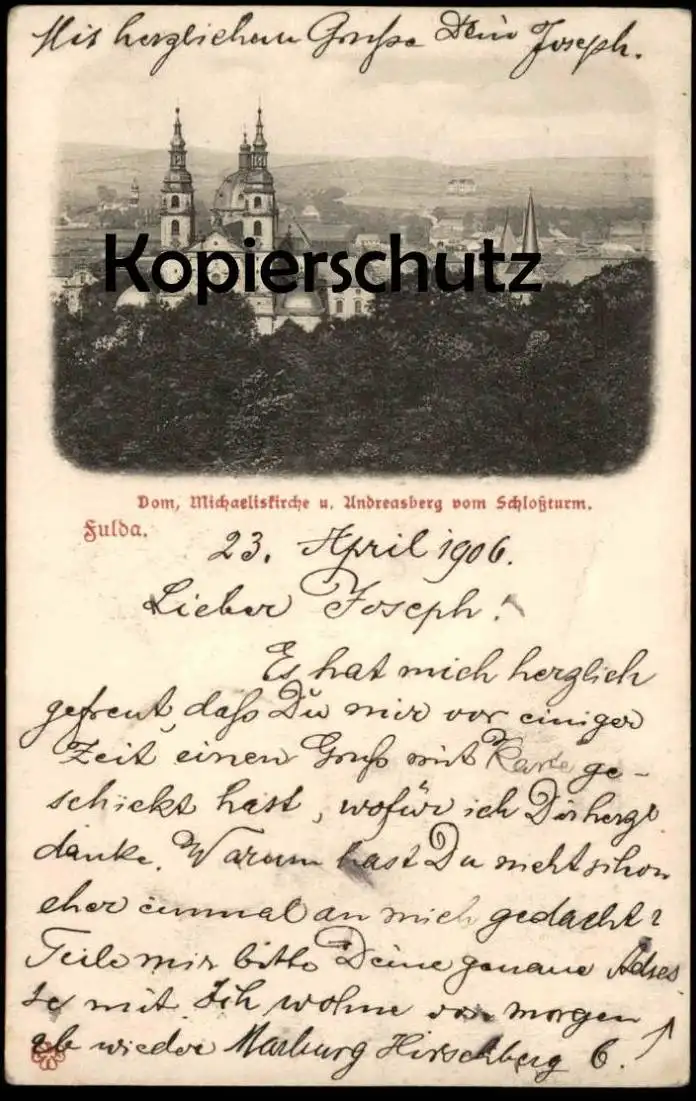 Mit herzlichem Gruße Dein Joseph.
Kopierschutz
Dom, Michaeliskirche u. Andreasberg vom Schloßturm.
Fulda.
23. April 1906.
Lieber Joseph!
Es hat mich herzlich
gefreut, daß Du mir vor einiger
Zeit einen Gruß mit Karte ge-
schickt hast, wofür ich Dir herzl.
danke. Warum hast Du nicht schon
eher einmal an mich gedacht?
Teile mir bitte Deine genaue Adres
se mit. Ich wohne von morgen
ab wieder Marburg Hirschberg 6.